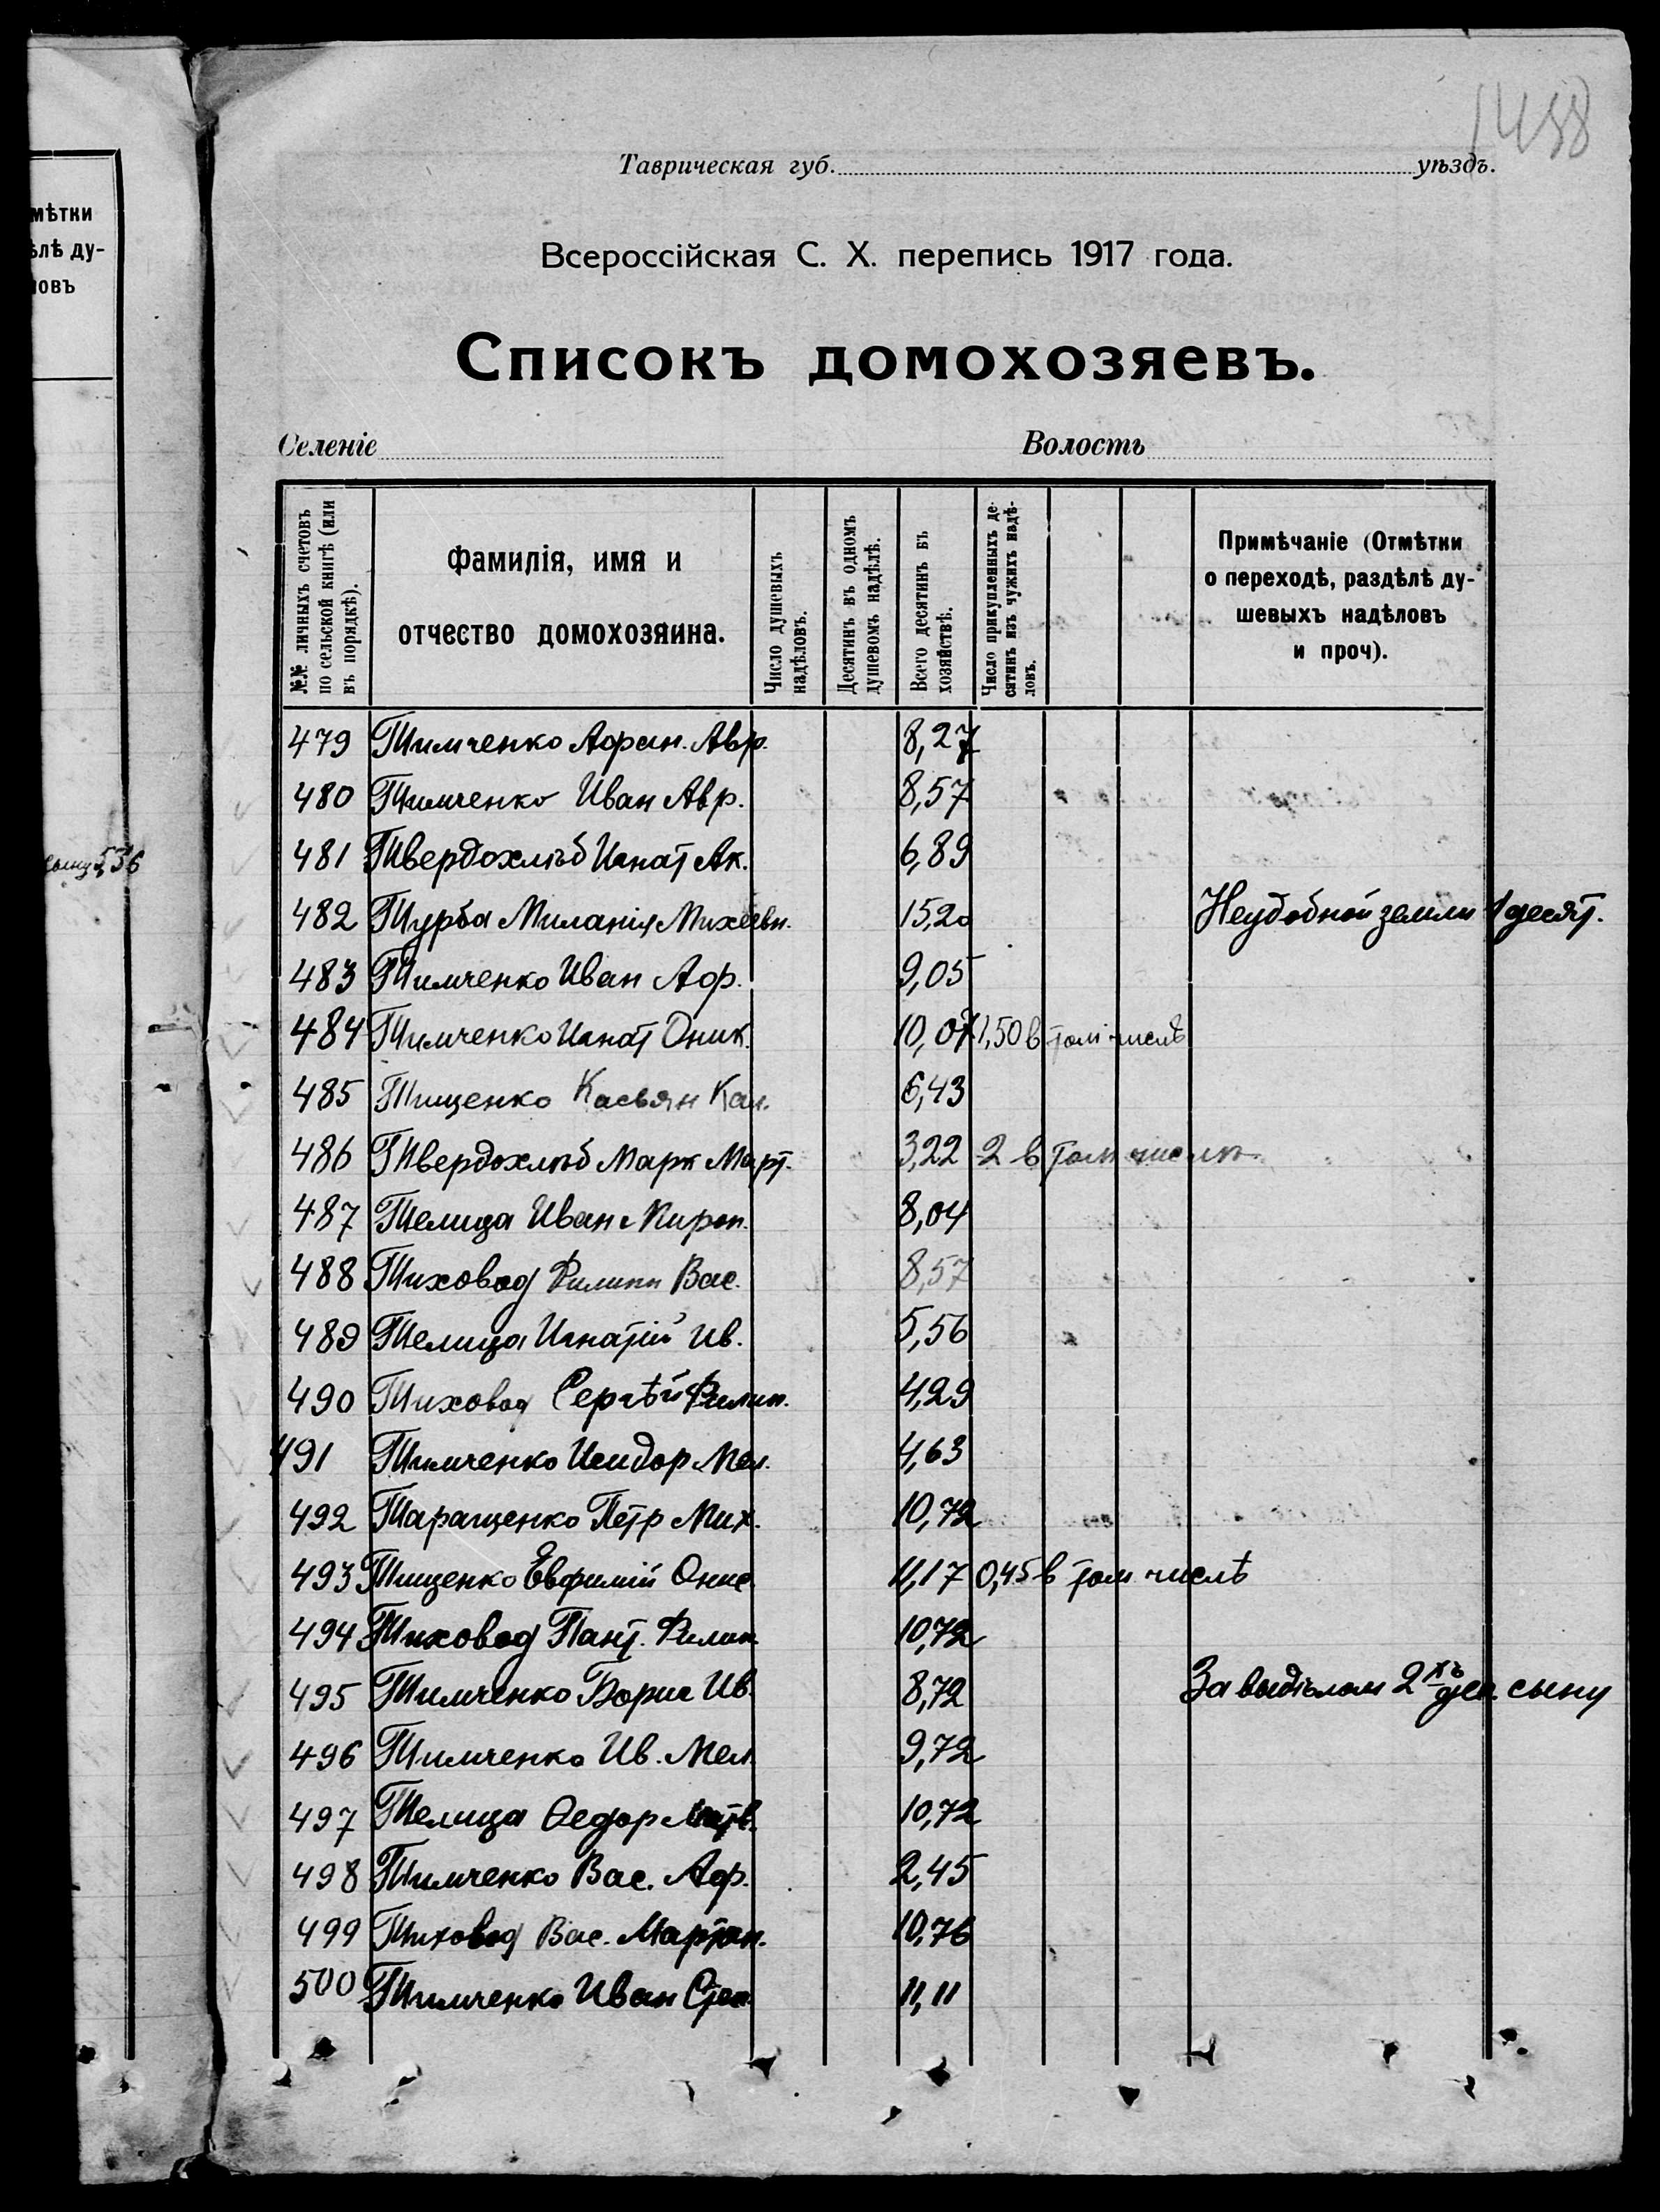 мѣтки
ѣлѣ ду-
ловъ
сыну 536
1488
Таврическая губ. уѣздъ.
Всероссійская С. Х. перепись 1917 года.
Списокъ домохозяевъ.
Селеніе Волость
№№ личныхъ счетовъ по сельской книгѣ (или въ порядкѣ).
Фамилія, имя и отчество домохозяина.
Число душевыхъ надѣловъ.
Десятинъ въ одномъ душевомъ надѣлѣ.
Всего десятинъ въ хозяйствѣ.
Число прикупленныхъ десятинъ изъ чужихъ надѣловъ.
Примѣчаніе (Отмѣтки
о переходѣ, раздѣлѣ ду-
шевыхъ надѣловъ
и проч).
479 Тимченко Афан. Авр. 8,27
480 Тимченко Иван Авр. 8,57
481 Твердохлѣб Игнат Ак. 6,89
482 Турба Миланія Михеевн. 15,20 Неудобной земли 1 десят.
483 Тимченко Иван Аф. 9,05
484 Тимченко Игнат Оник. 10,07 1,50 в том числѣ
485 Тищенко Касьян Кал. 6,43
486 Твердохлѣб Марк Март. 3,22 2 в том числѣ
487 Телица Иван Мирон. 8,04
488 Тиховод Филипп Вас. 8,57
489 Телица Игнатій Ив. 5,56
490 Тиховод Сергѣй Филип. 4,29
491 Тимченко Исидор Мел. 4,63
492 Таращенко Петр Мих. 10,72
493 Тищенко Евфимій Онис. 11,17 0,45 в том числѣ
494 Тиховод Пант. Филип. 10,72
495 Тимченко Борис Ив. 8,72 За выдѣлом 2хъ дес. сыну
496 Тимченко Ив. Мел. 9,72
497 Телица Федор Матв. 10,72
498 Тимченко Вас. Аф. 2,45
499 Тиховод Вас. Мартын. 10,76
500 Тимченко Иван Степ. 11,11